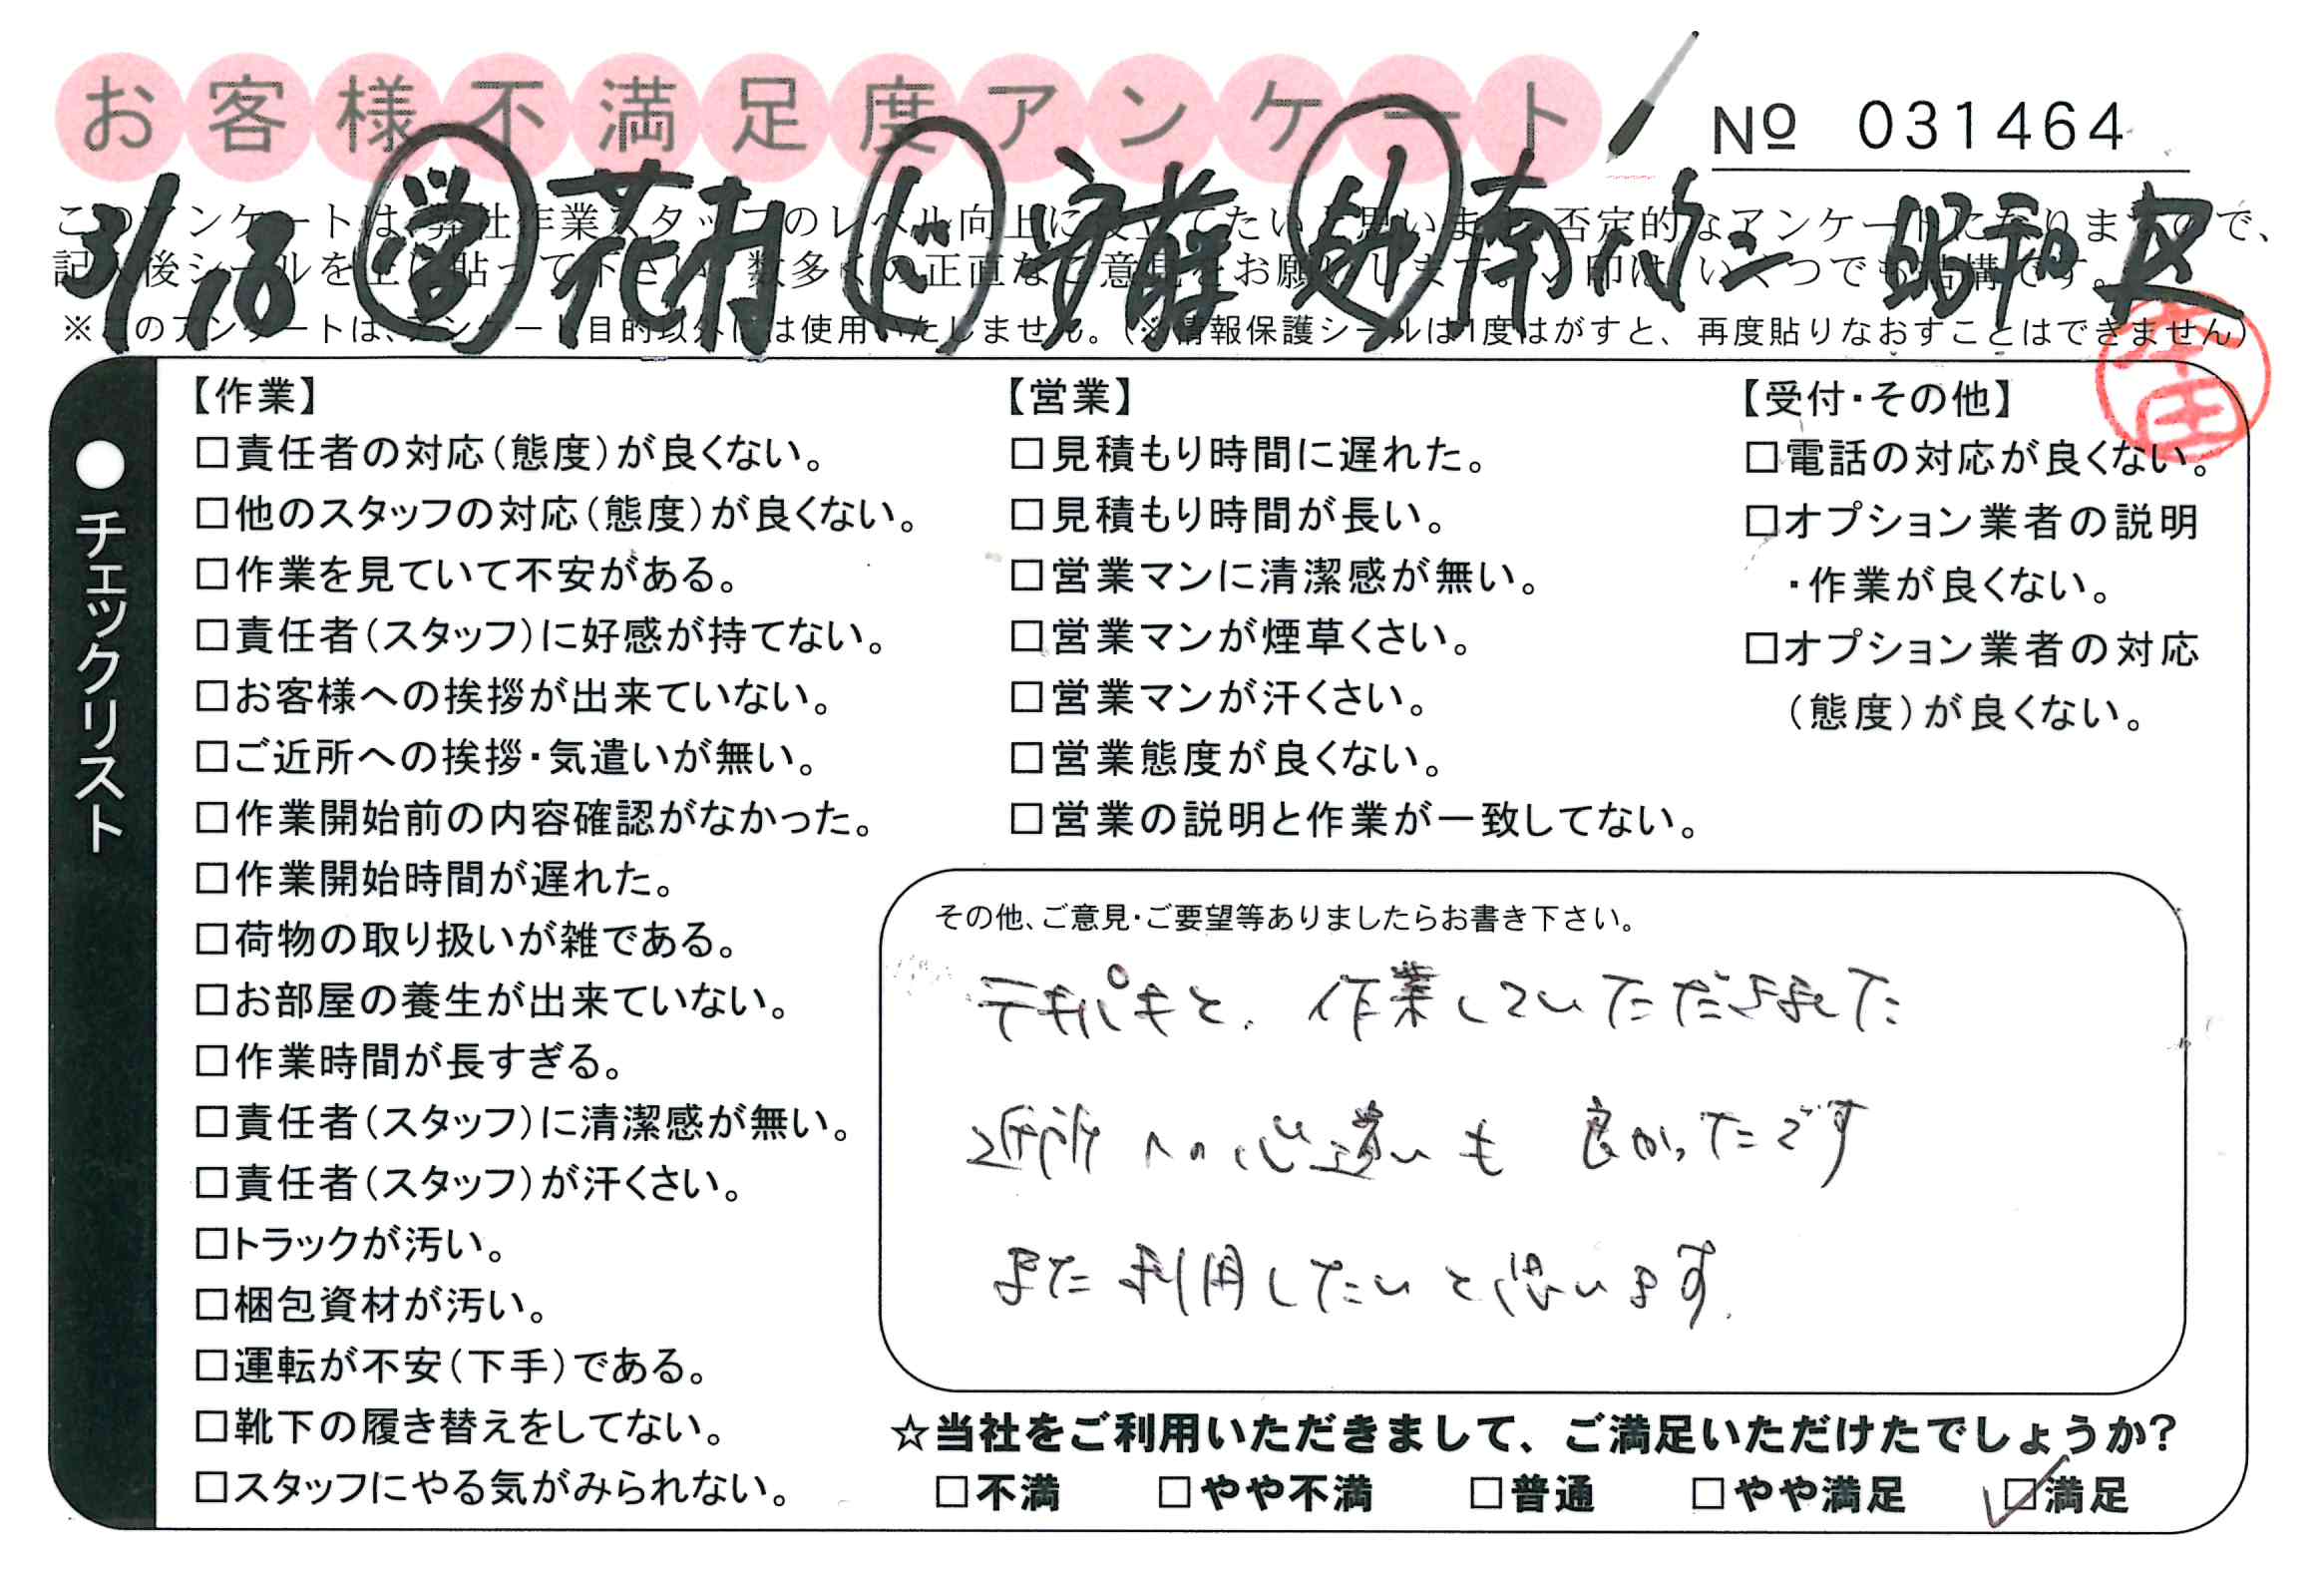 お客様不満足度アンケート
№ 031464
3/18 学 花村 ド 安藤 助 南 昭和区
このアンケートは、弊社作業スタッフのレベル向上に役立てたいと思います。否定的なアンケートになりますので、
記入後シールを上に貼って下さい。数多くの正直なご意見をお願いします。レ印は、いくつでも結構です。
※このアンケートは、アンケート目的以外には使用いたしません。(※情報保護シールは1度はがすと、再度貼りなおすことはできません)
●チェックリスト
【作業】
□責任者の対応(態度)が良くない。
□他のスタッフの対応(態度)が良くない。
□作業を見ていて不安がある。
□責任者(スタッフ)に好感が持てない。
□お客様への挨拶が出来ていない。
□ご近所への挨拶・気遣いが無い。
□作業開始前の内容確認がなかった。
□作業開始時間が遅れた。
□荷物の取り扱いが雑である。
□お部屋の養生が出来ていない。
□作業時間が長すぎる。
□責任者(スタッフ)に清潔感が無い。
□責任者(スタッフ)が汗くさい。
□トラックが汚い。
□梱包資材が汚い。
□運転が不安(下手)である。
□靴下の履き替えをしてない。
□スタッフにやる気がみられない。
【営業】
□見積もり時間に遅れた。
□見積もり時間が長い。
□営業マンに清潔感が無い。
□営業マンが煙草くさい。
□営業マンが汗くさい。
□営業態度が良くない。
□営業の説明と作業が一致してない。
【受付・その他】
□電話の対応が良くない。
□オプション業者の説明
・作業が良くない。
□オプション業者の対応
(態度)が良くない。
その他、ご意見・ご要望等ありましたらお書き下さい。
テキパキと、作業していただきました
近所への心遣いも 良かったです
また利用したいと思います。
☆当社をご利用いただきまして、ご満足いただけたでしょうか?
□不満 □やや不満 □普通 □やや満足 ☑満足